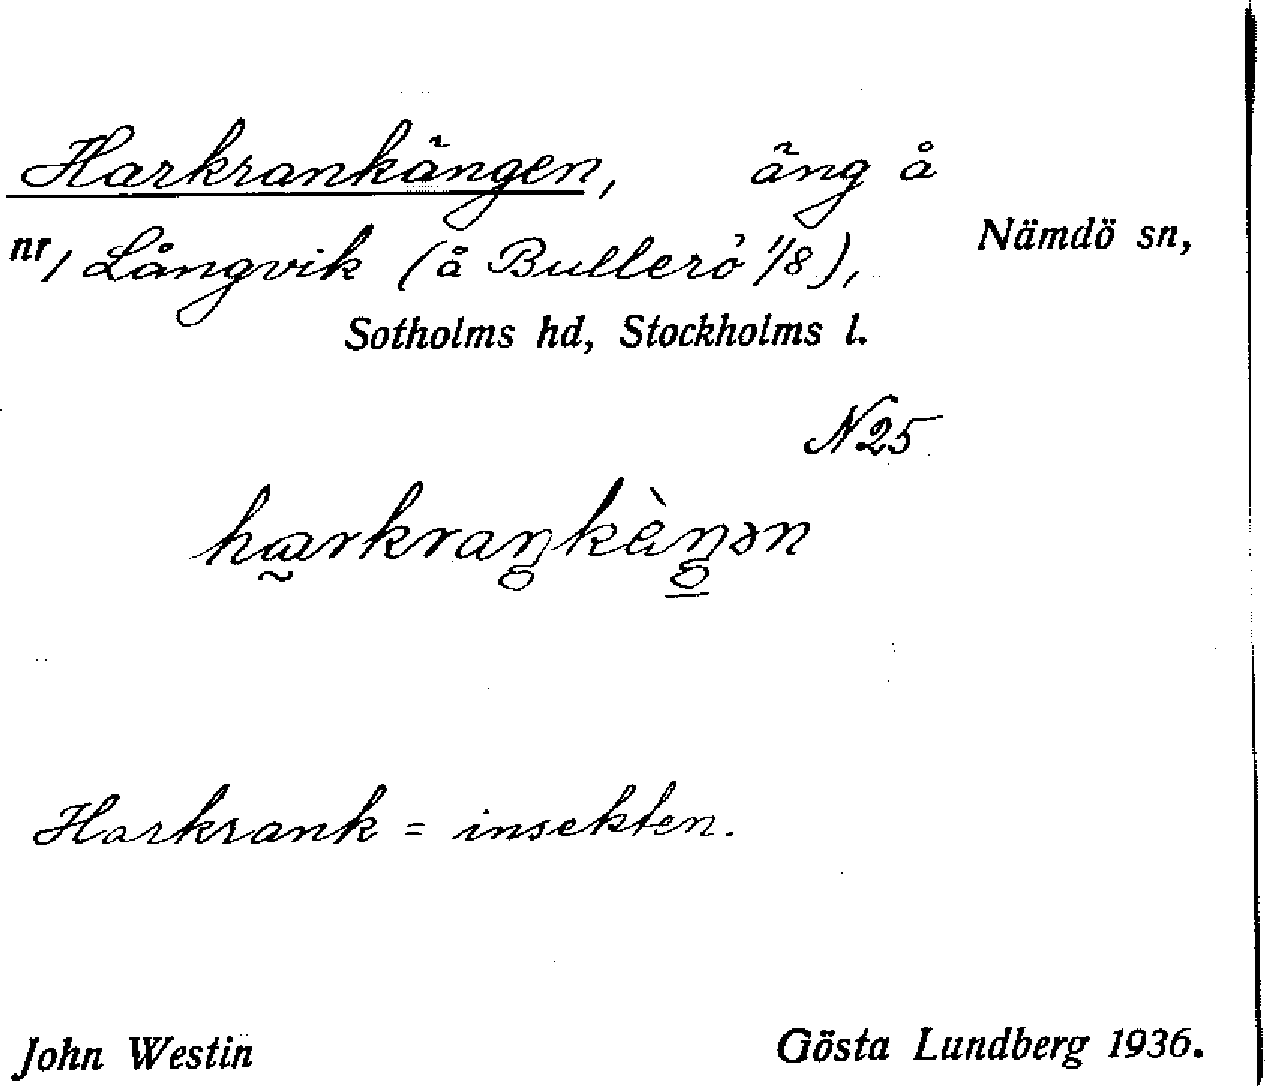 Harkrankängen, äng å
Nämdö sn,
nr, Långvik (å Bullerö 1/8),
Sotholms hd, Stockholms l.
N25
harkraŋkä̀ŋən
Harkrank = insekten.
John Westin
Gösta Lundberg 1936.